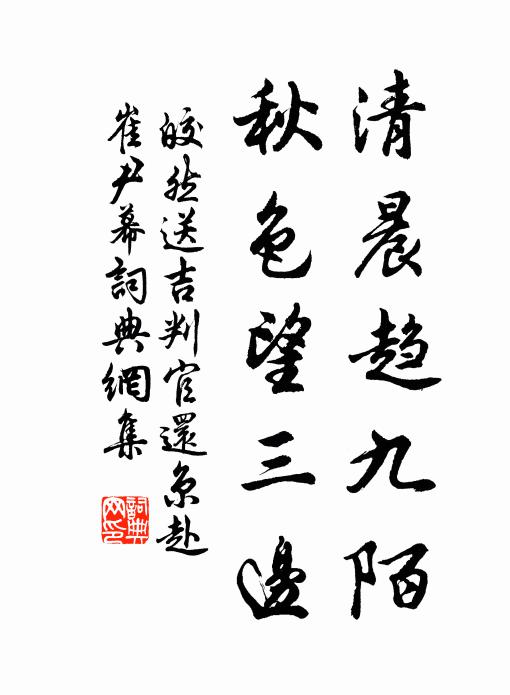 清晨趨九陌
秋色望三邊
皎然送吉判官還京赴
崔尹幕詞典網集
詞典
网印